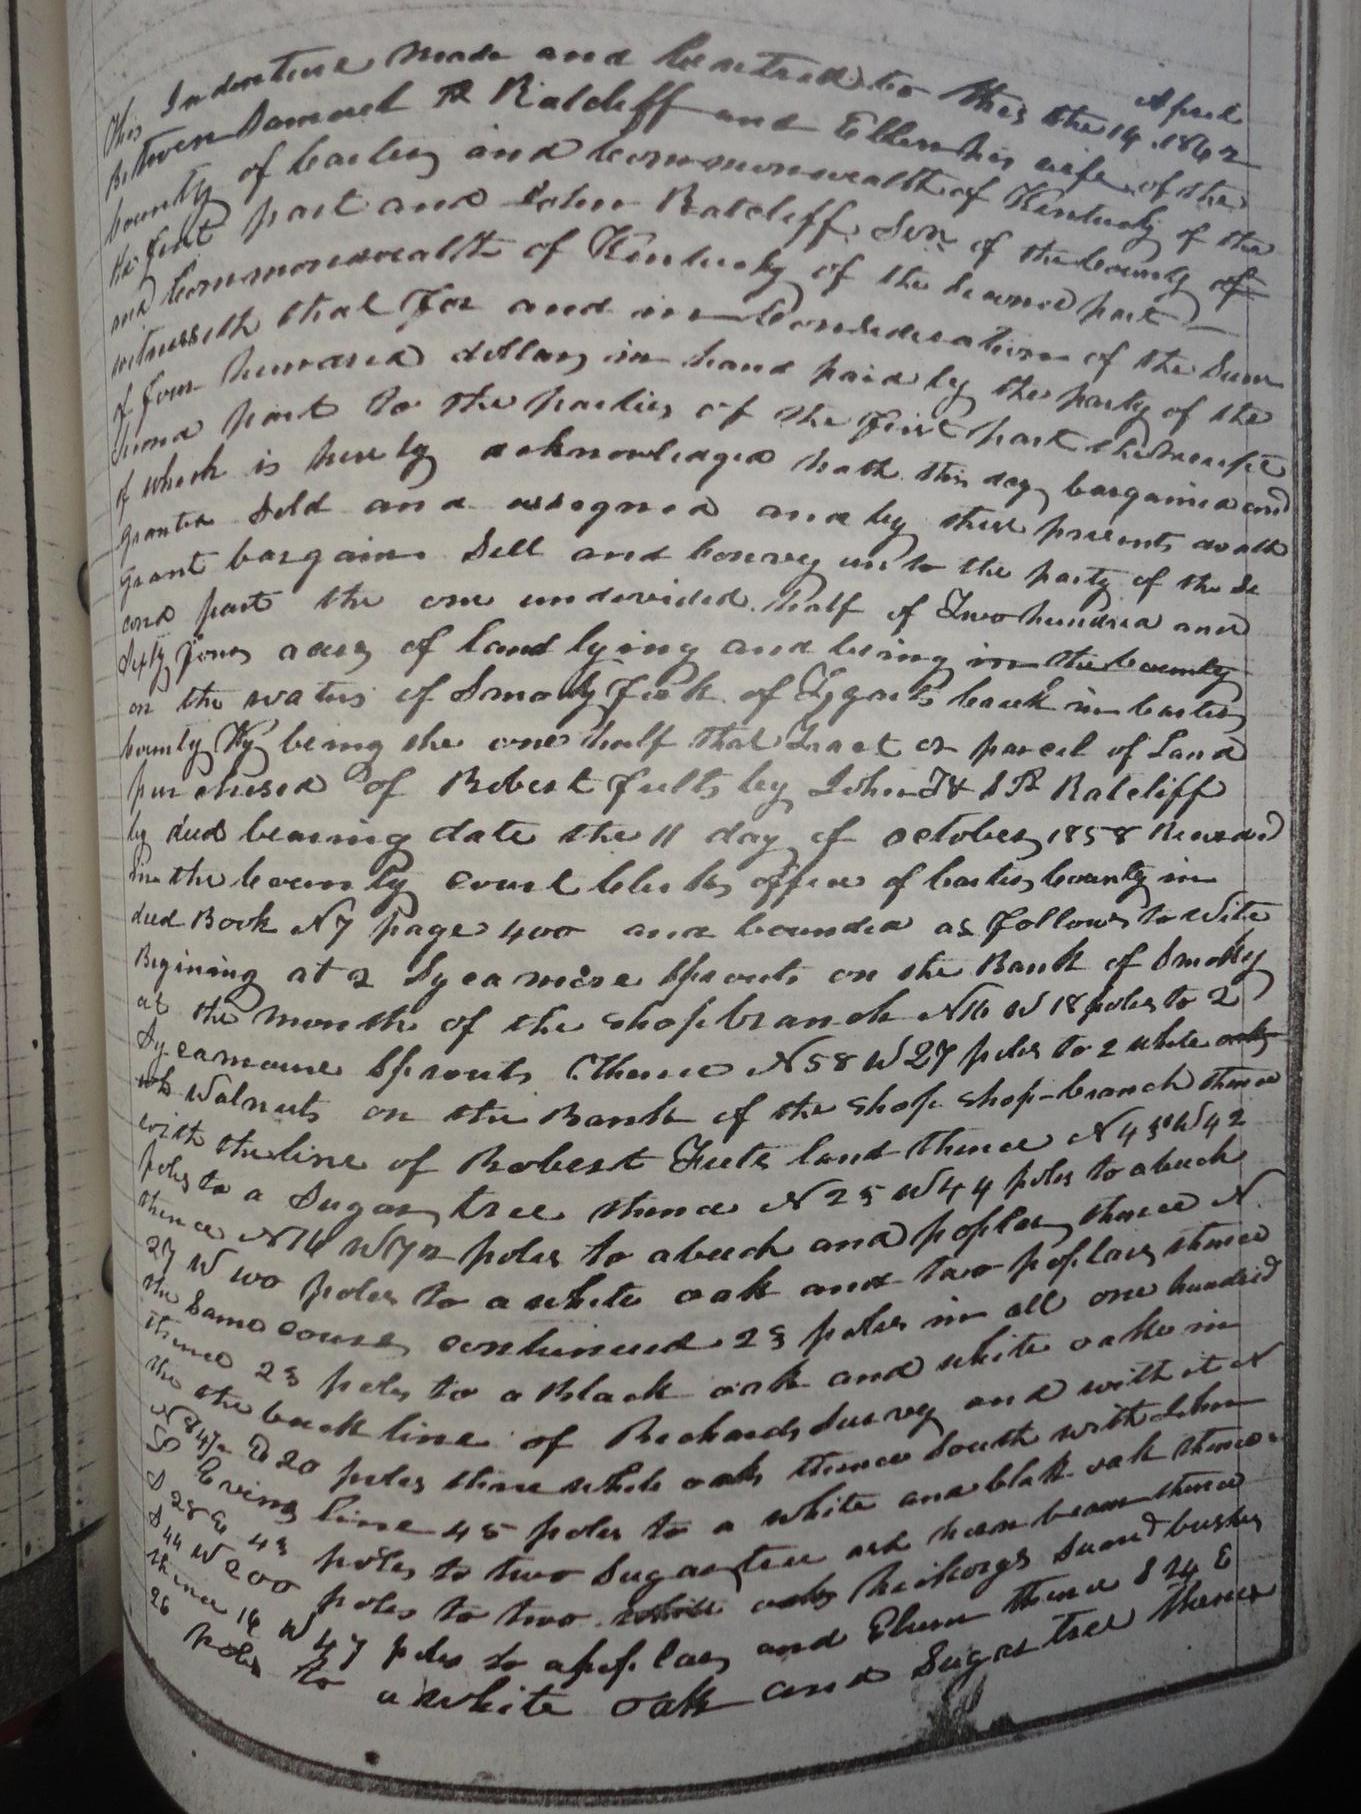 This Indenture made and Eentered to this the 14 April 1862
Between Samuel R Ratcliff and Ellen his wife of the
County of Carter and Commonwealth of Kentucky of the
the first part and John Ratcliff Sen of the County of
and Commonwealth of Kentucky of the second part —
witnesseth that for and in Consideration of the Sum
of four hundred dollars in hand paid by the party of the
second part to the parties of the first part the receipt
of which is hereby acknowledged hath this day bargained and
granted Sold and assigned and by these presents doath
grant bargain Sell and Convey unto the party of the Se
cond part the one undevided half of Two hundred and
Sixty four acres of land lying and being in the County
on the waters of Smoky Fork of Tygarts Creek in Carter
County Ky being the one half that Tract or parcel of Land
purchased of Robert Fults by John H & S R Ratcliff
by deed bearing date the 11 day of october 1858 Recorded
in the County Court Clerks office of Carter County in
deed Book N 7 page 400 and bounded as follows to wite
Begining at 2 Sycamore Sprouts on the Bank of Smoky
at the mouth of the shop branch N 16 W 18 poles to 2
Sycamoure Sprouts Thence N 58 W 27 poles to 2 white oaks
Walnuts on the Bank of the shop shop-branch thence
with the line of Robert Fults land thence N 45 W 42
poles to a Sugar tree thence N 25 W 44 poles to a buck
thence N 16 W 72 poles to a buck and poplar thence N
27 W 100 poles to a white oak and two poplars thence
the Same course continued 23 poles in all one hundred
thence 23 poles to a Black oak and white oaks in
the the back line of Richards Survey and with it N
N 84 E 20 poles three white oaks thence South with John
Evins line 45 poles to a white and blak oak thence
S 28 E 43 poles to two Sugartree and horn beam thence
S 44 W 200 poles to two white oaks hickorys bushes
thence 16 W 47 poles to a poplar and Elum thence S 24 E
26 poles to a white oak and Sugar tree thence